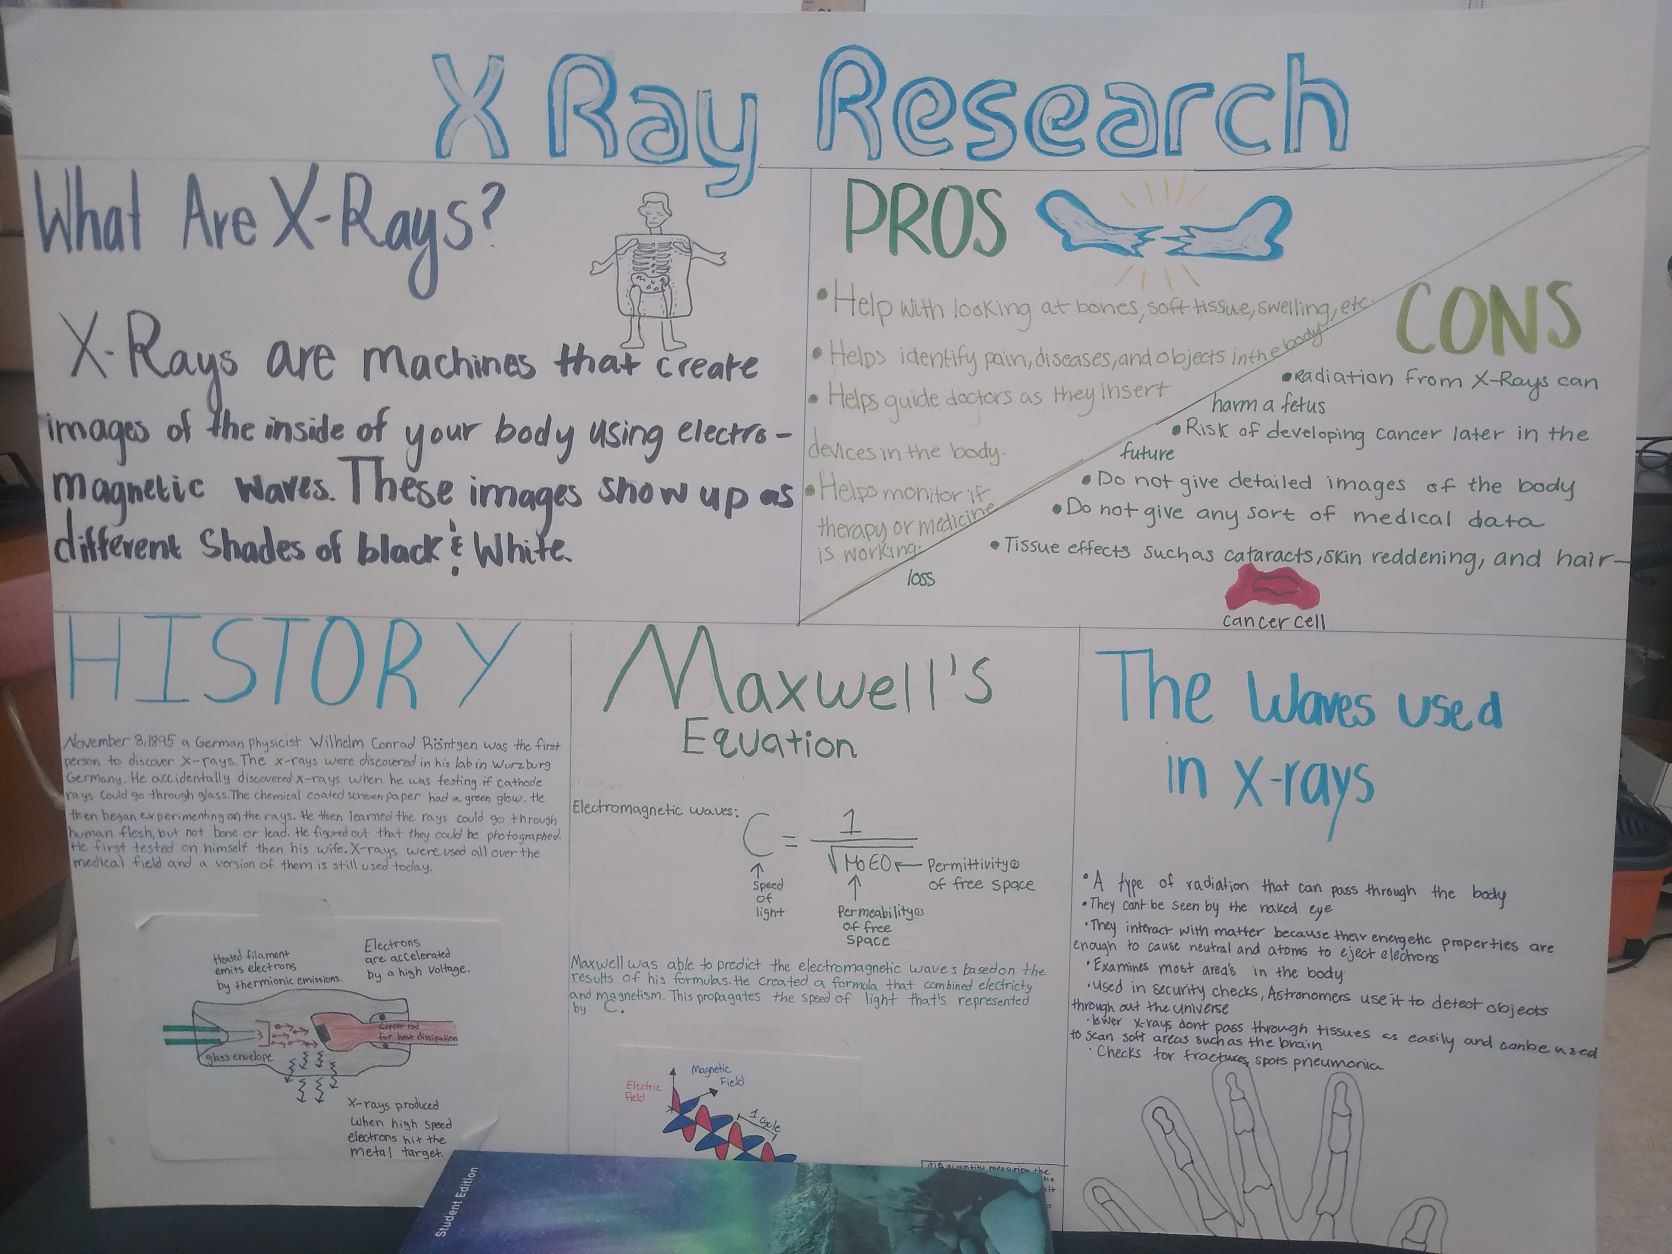 X Ray Research
What Are X-Rays?
X-Rays are machines that create
images of the inside of your body using electro-
magnetic waves. These images show up as
different shades of black & White.
PROS
•Help with looking at bones, soft tissue, swelling, etc.
•Helps identify pain, diseases, and objects in the body.
•Helps guide doctors as they insert
devices in the body.
•Helps monitor if
therapy or medicine
is working.
CONS
•radiation from X-Rays can
harm a fetus
•Risk of developing cancer later in the
future
•Do not give detailed images of the body
•Do not give any sort of medical data
•Tissue effects such as cataracts, skin reddening, and hair-
loss
cancer cell
HISTORY
November 8, 1895 a German physicist Wilhelm Conrad Röntgen was the first
person to discover x-rays. The x-rays were discovered in his lab in Wurzburg
Germany. He accidentally discovered x-rays when he was testing if cathode
rays could go through glass. The chemical coated screen paper had a green glow. He
then began experimenting on the rays. He then learned the rays could go through
human flesh, but not bone or lead. He figured out that they could be photographed.
He first tested on himself then his wife. X-rays were used all over the
medical field and a version of them is still used today.
Heated filament
emits electrons
by thermionic emissions.
Electrons
are accelerated
by a high voltage.
Copper rod
for heat dissipation
glass envelope
X-rays produced
when high speed
electrons hit the
metal target.
Maxwell's
Equation
Electromagnetic waves:
C = 1
√MoEO
Permittivity
of free space
Speed
of
light
Permeability
of free
space
Maxwell was able to predict the electromagnetic waves based on the
results of his formulas. He created a formula that combined electricty
and magnetism. This propagates the speed of light that's represented
by C.
Electric
Field
Magnetic
Field
1 cycle
A quantity measuring the
The Waves used
in x-rays
•A type of radiation that can pass through the body
•They cant be seen by the naked eye
•They interact with matter because their energetic properties are
enough to cause neutral and atoms to eject electrons
•Examines most area's in the body
•Used in security checks, Astronomers use it to detect objects
through out the universe
•lower x-rays dont pass through tissues as easily and can be used
to scan soft areas such as the brain
•Checks for fractures, spots pneumonia
Student Edition